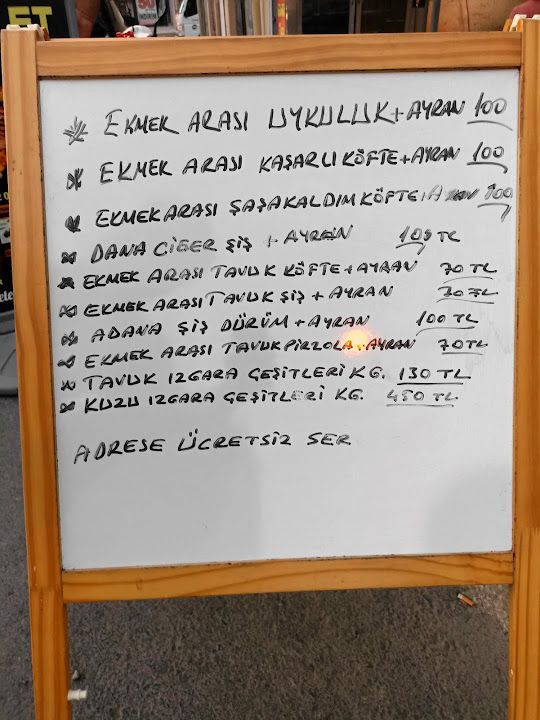 ET
50
İNDİRİM
EKMEK ARASI UYKULUK + AYRAN 100
EKMEK ARASI KAŞARLI KÖFTE + AYRAN 100
EKMEK ARASI ŞAŞAKALDIM KÖFTE + AYRAN 100
DANA CİĞER ŞİŞ + AYRAN 100 TL
EKMEK ARASI TAVUK KÖFTE + AYRAN 70 TL
EKMEK ARASI TAVUK ŞİŞ + AYRAN TL
ADANA ŞİŞ DÜRÜM + AYRAN 100 TL
EKMEK ARASI TAVUK PİRZOLA + AYRAN 70 TL
TAVUK IZGARA ÇEŞİTLERİ KG. 130 TL
KUZU IZGARA ÇEŞİTLERİ KG. 450 TL
ADRESE ÜCRETSİZ SER